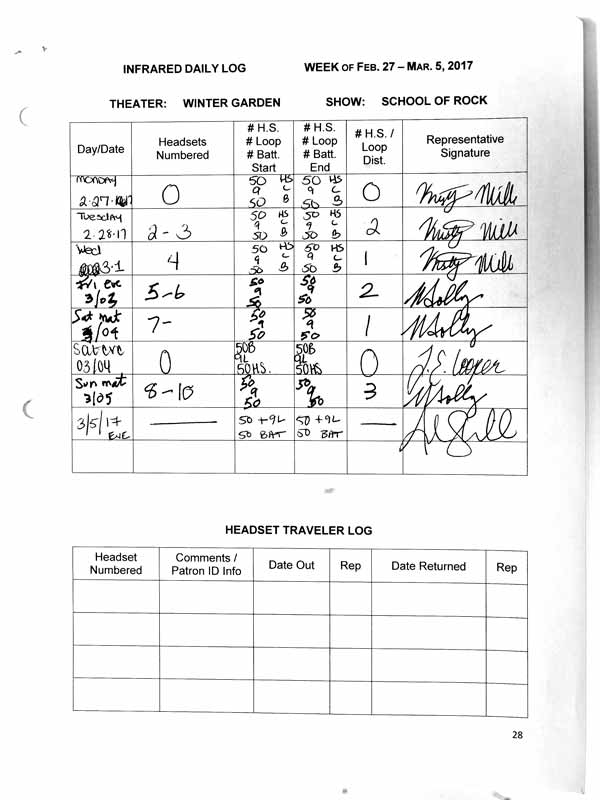 INFRARED DAILY LOG WEEK OF FEB. 27 – MAR. 5, 2017
THEATER: WINTER GARDEN SHOW: SCHOOL OF ROCK
Day/Date Headsets Numbered # H.S. # Loop # Batt. Start # H.S. # Loop # Batt. End # H.S. / Loop Dist. Representative Signature
Monday 2.27. 0 50 HS 9 L 50 B 50 HS 9 L 50 B 0 Kristy Mills
Tuesday 2.28.17 2-3 50 HS 9 L 50 B 50 HS 9 L 50 B 2 Kristy Mills
Wed 3.1 4 50 HS 9 L 50 B 50 HS 9 L 50 B 1 Kristy Mills
Fri eve 3/03 5-6 50 9 50 50 9 50 2
Sat mat 3/04 7- 50 9 50 50 9 50 1
Sat eve 03/04 0 50B 9L 50HS. 50B 9L 50HS 0 J.S. Cooper
Sun mat 3/05 8-10 50 9 50 50 9 50 3
3/5/17 EVE — 50 +9L 50 BAT 50 +9L 50 BAT —
HEADSET TRAVELER LOG
Headset Numbered Comments / Patron ID Info Date Out Rep Date Returned Rep
28